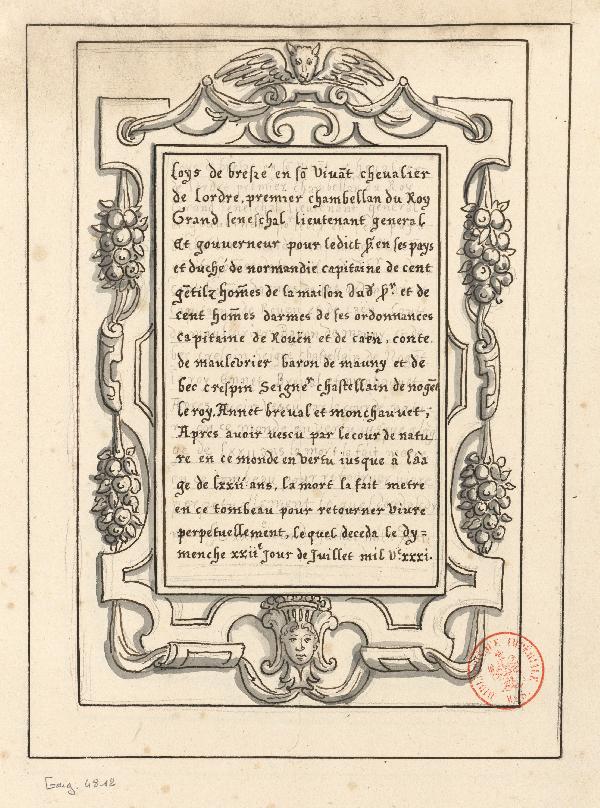 Loys de breszé en sō Vivāt chevalier
de Lordre, premier chambellan du Roy
Grand seneschal lieutenant general
Et gouverneur pour ledict sʳ en ses pays
et duché de normandie capitaine de cent
gētilz hom̄es de la maison dud sʳ et de
cent hom̄es darmes de ses ordonnances
capitaine de Rouen et de caen, conte
de maulevrier baron de mauny et de
bec crespin Seigneʳ chastellain de nogēt
le roy, Annet breval et monchauvet,
Apres auoir vescu par le cour de natu
re en ce monde en vertu iusque à lâa
ge de lxxii ans, la mort la fait metre
en ce tombeau pour retourner vivre
perpetuellement, lequel deceda le dy=
menche xxiiᵉ Jour de Juillet mil Vᶜxxxi.
Gaig. 4818